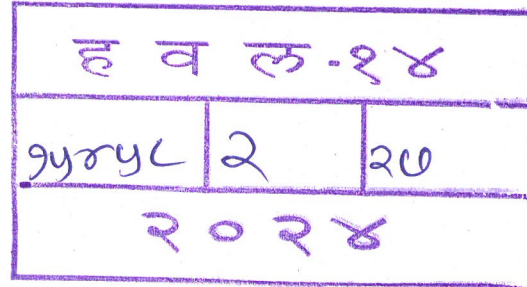 ह व ल-१४
१५४५८ २ २७
२०२४